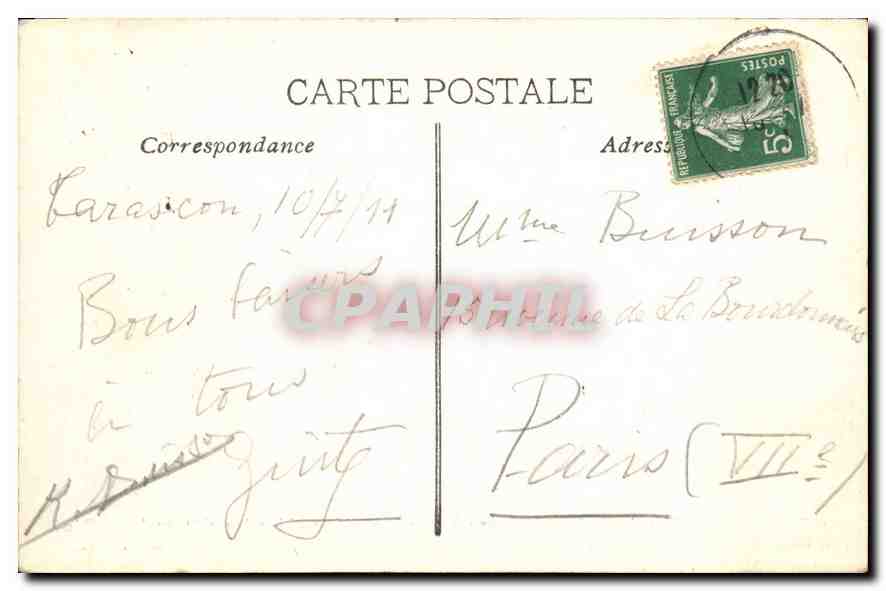 CARTE POSTALE
Correspondance
Tarascon, 10/7/11
Bons baisers
à tous
Adress
RÉPUBLIQUE FRANÇAISE
POSTES
5c
12 20
Mme Buisson
avenue de La Bourdonnais
Paris (VIIe)
CPAPHIL